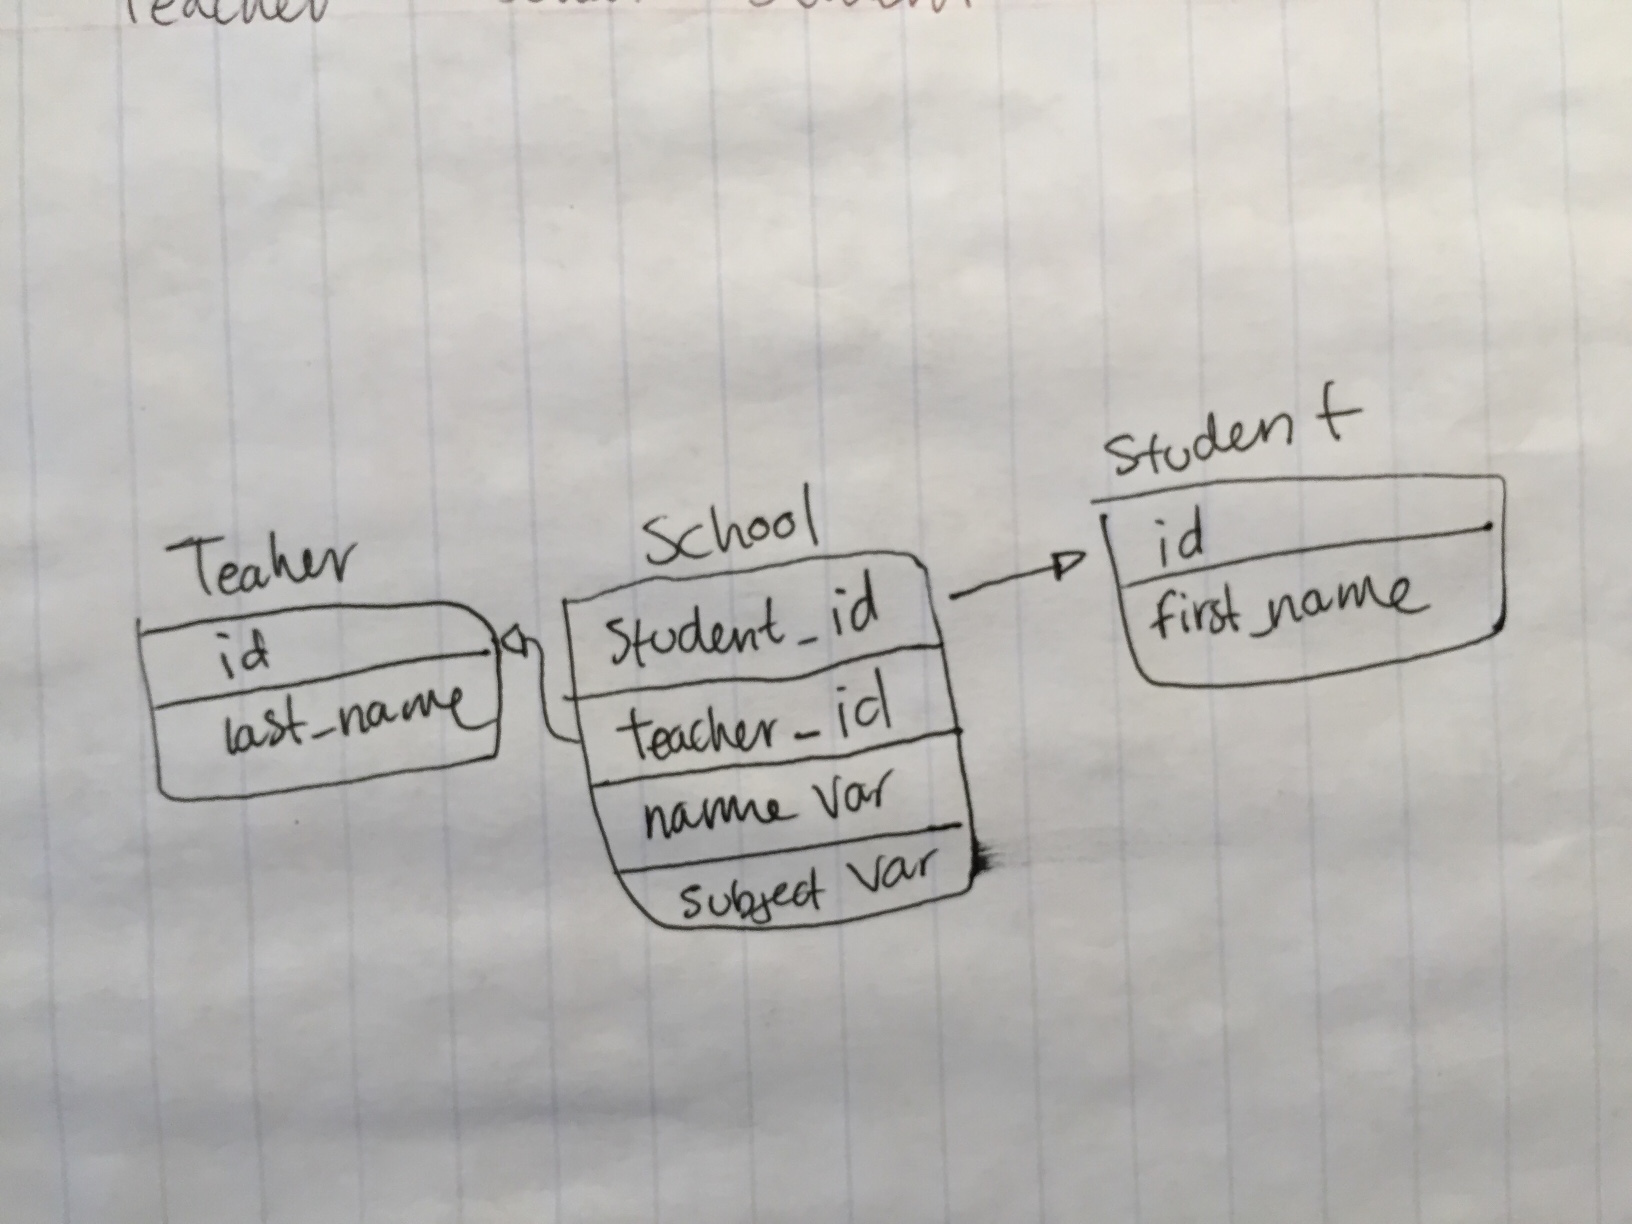 Teacher
Student
Teaher
id
last_name
School
Student_id
teacher_id
name Var
subject Var
Student
id
first_name